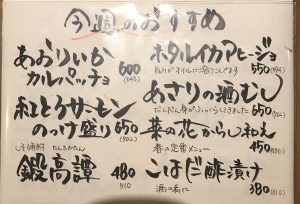 今週のおすすめ
あおりいか
カルパッチョ 600
紅とろサーモン
のっけ盛り 650
しそ焼酎 たんたかたん
鍛高譚 480
510
ホタルイカアヒージョ
旨みがオイルに溶けこんでます 550
あさりの酒むし
だんだん身がふっくらしてきました 650
菜の花からし和え
春の定番メニュー 450
こはだ酢漬け
酒の肴に 380